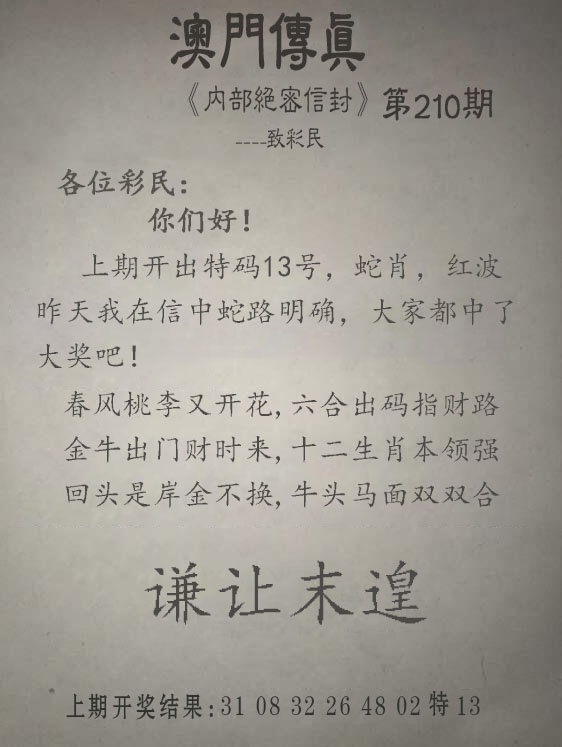 澳門傳眞
《内部絕密信封》第210期
----致彩民
各位彩民：
你们好！
上期开出特码13号，蛇肖，红波
昨天我在信中蛇路明确，大家都中了
大奖吧！
春风桃李又开花,六合出码指财路
金牛出门财时来,十二生肖本领强
回头是岸金不换,牛头马面双双合
谦让末遑
上期开奖结果:31 08 32 26 48 02 特 13